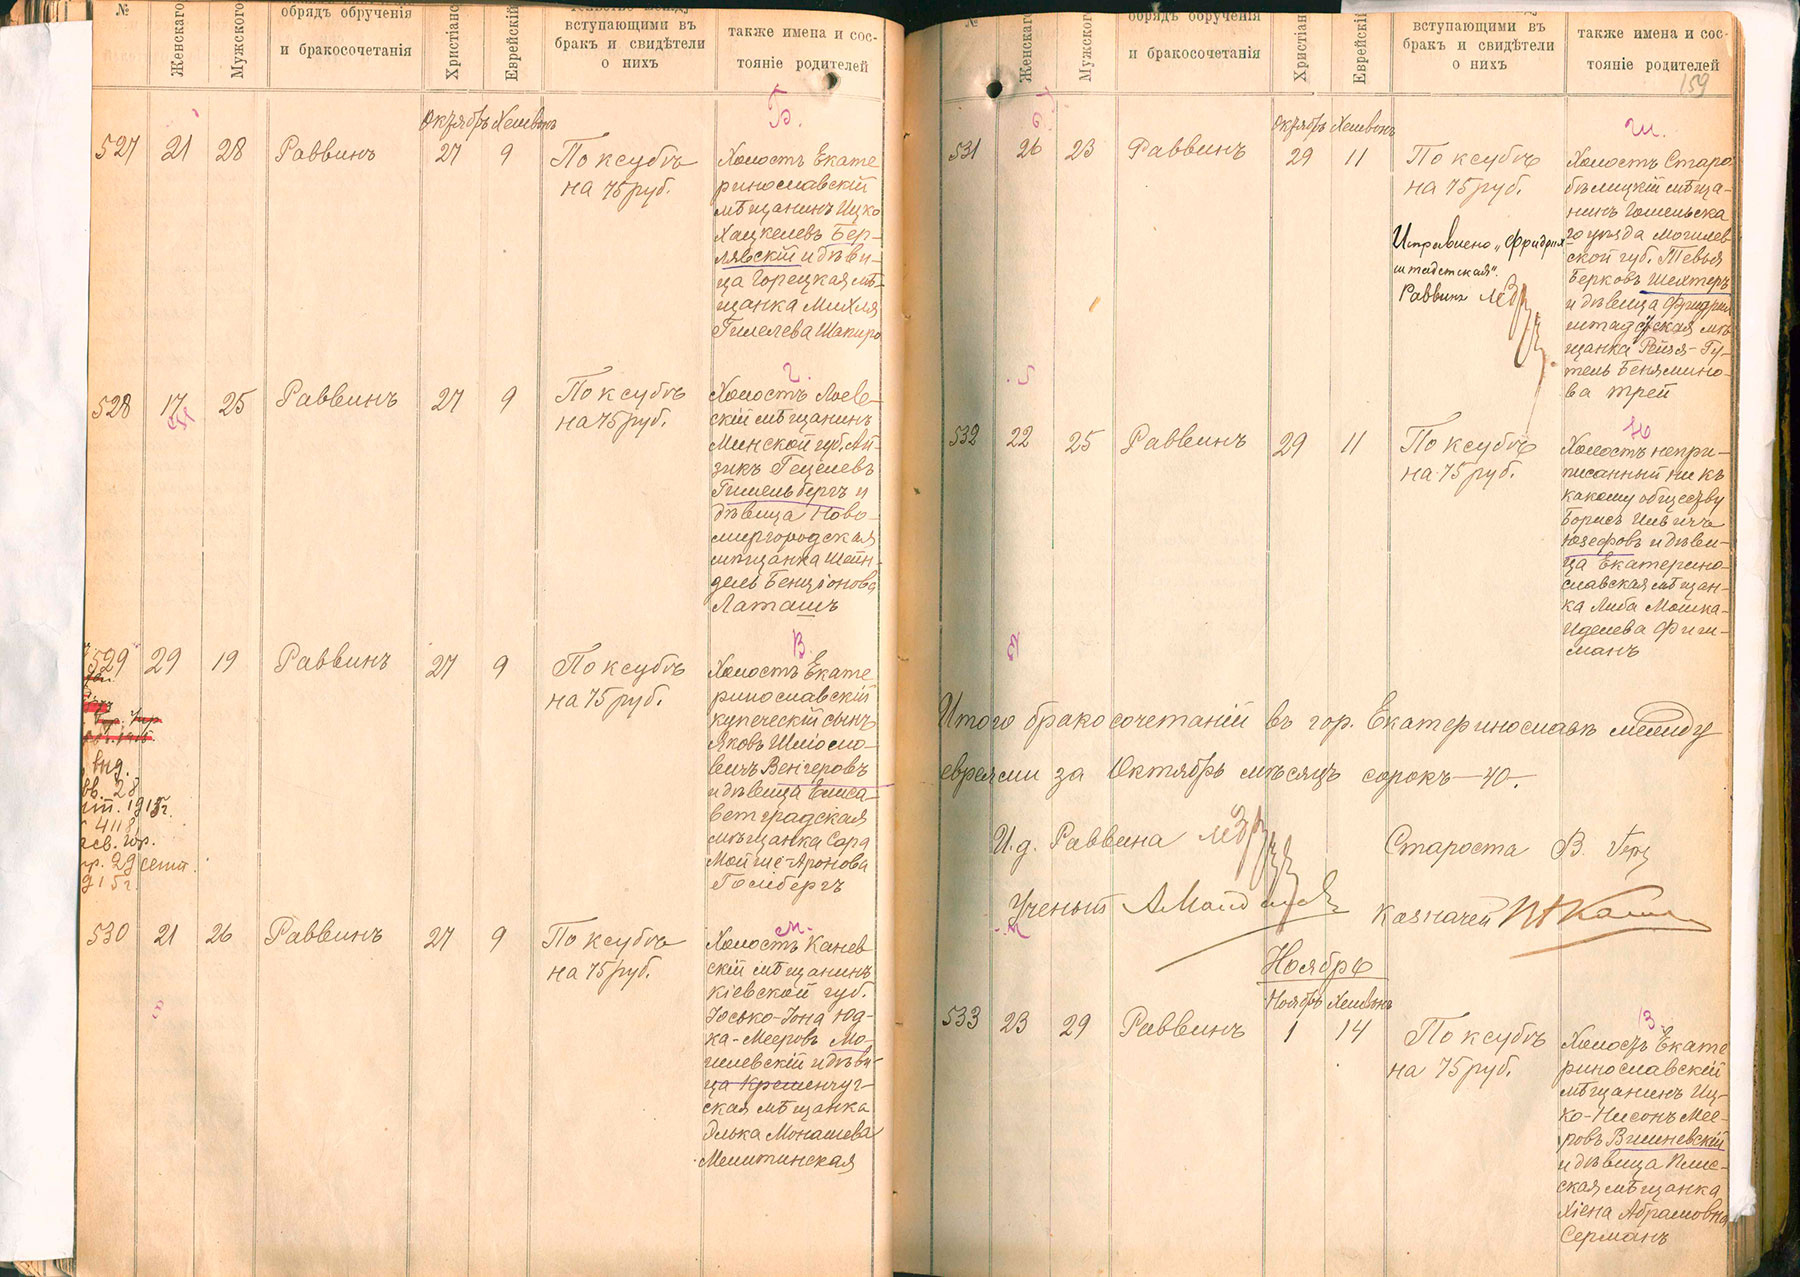 №
Женскаго
Мужского
обрядъ обрученія
и бракосочетанія
Христіанс
Еврейскій
вступающими въ
бракъ и свидѣтели
о нихъ
также имена и сос-
тояніе родителей
Октябрь Хешвонъ
527 21 28 Раввинъ 27 9 По ксубѣ
на 75 руб.
Б.
Холостъ Екате
ринославскій
мѣщанинъ Ицко
Хацкелевъ Бер-
лявскій и дѣви-
ца Горецкая мѣ-
щанка Михля
Гилелева Шапиро
528 17 25 Раввинъ 27 9 По ксубѣ
на 75 руб.
Г.
Холостъ Лоев-
скій мѣщанинъ
Минской губ. Ай-
зикъ Гецелевъ
Гимельбергъ и
дѣвица Ново-
миргородская
мѣщанка Шейн-
дель Бенціонова
Латашъ
529 29 19 Раввинъ 27 9 По ксубѣ
на 75 руб.
В.
Холостъ Екате
ринославскій
купеческій сынъ
Яковъ Шліомо-
вичъ Венгеровъ
и дѣвица Елиса-
ветградская
мѣщанка Сара
Мойше-Аронова
Голбергъ
выд.
28
1915г.
4118
гор.
29 сент.
915г.
530 21 26 Раввинъ 27 9 По ксубѣ
на 75 руб.
М.
Холостъ Канев
скій мѣщанинъ
Кіевской губ.
Іосько-Іона Юд-
ка-Мееровъ Мо-
гилевскій и дѣви-
ца Кременчуг-
ская мѣщанка
Элька Монашева
Мелитинская
№
Женскаго
Мужского
обрядъ обрученія
и бракосочетанія
Христіан
Еврейскі
вступающими въ
бракъ и свидѣтели
о нихъ
также имена и сос-
тояніе родителей
159
Октябрь Хешвонъ
531 26 23 Раввинъ 29 11 По ксубѣ
на 75 руб.
Исправлено „Фридрих-
штадтская".
Раввинъ
Ш.
Холостъ Старо
бѣлицкій мѣща-
нинъ Гомельска
го уѣзда Могилев
ской губ. Тевья
Берковъ Шехтеръ
и дѣвица Фридрих
штадтская мѣ
щанка Рейзя-Гу-
тель Бенямино-
ва Трей
532 22 25 Раввинъ 29 11 По ксубѣ
на 75 руб.
Ю
Холостъ непри-
писанный ни къ
какому обществу
Борисъ Иевичъ
Юзефовъ и дѣви-
ца Екатерино-
славская мѣщан-
ка Либа Мошка-
Иделева Фиш-
манъ
Итого бракосочетаній въ гор. Екатеринославѣ между
евреями за Октябрь мѣсяцъ сорокъ-40-.
И.д. Раввина
Староста В.
Ученый
Казначей
Ноябрь
Ноябрь Хешвонъ
533 23 29 Раввинъ 1 14 По ксубѣ
на 75 руб.
В.
Холостъ Екате
ринославскій
мѣщанинъ Иц-
ко-Нисонъ Мее-
ровъ Вишневскій
и дѣвица Плис-
ская мѣщанка
Хіена Абрамовна
Серманъ